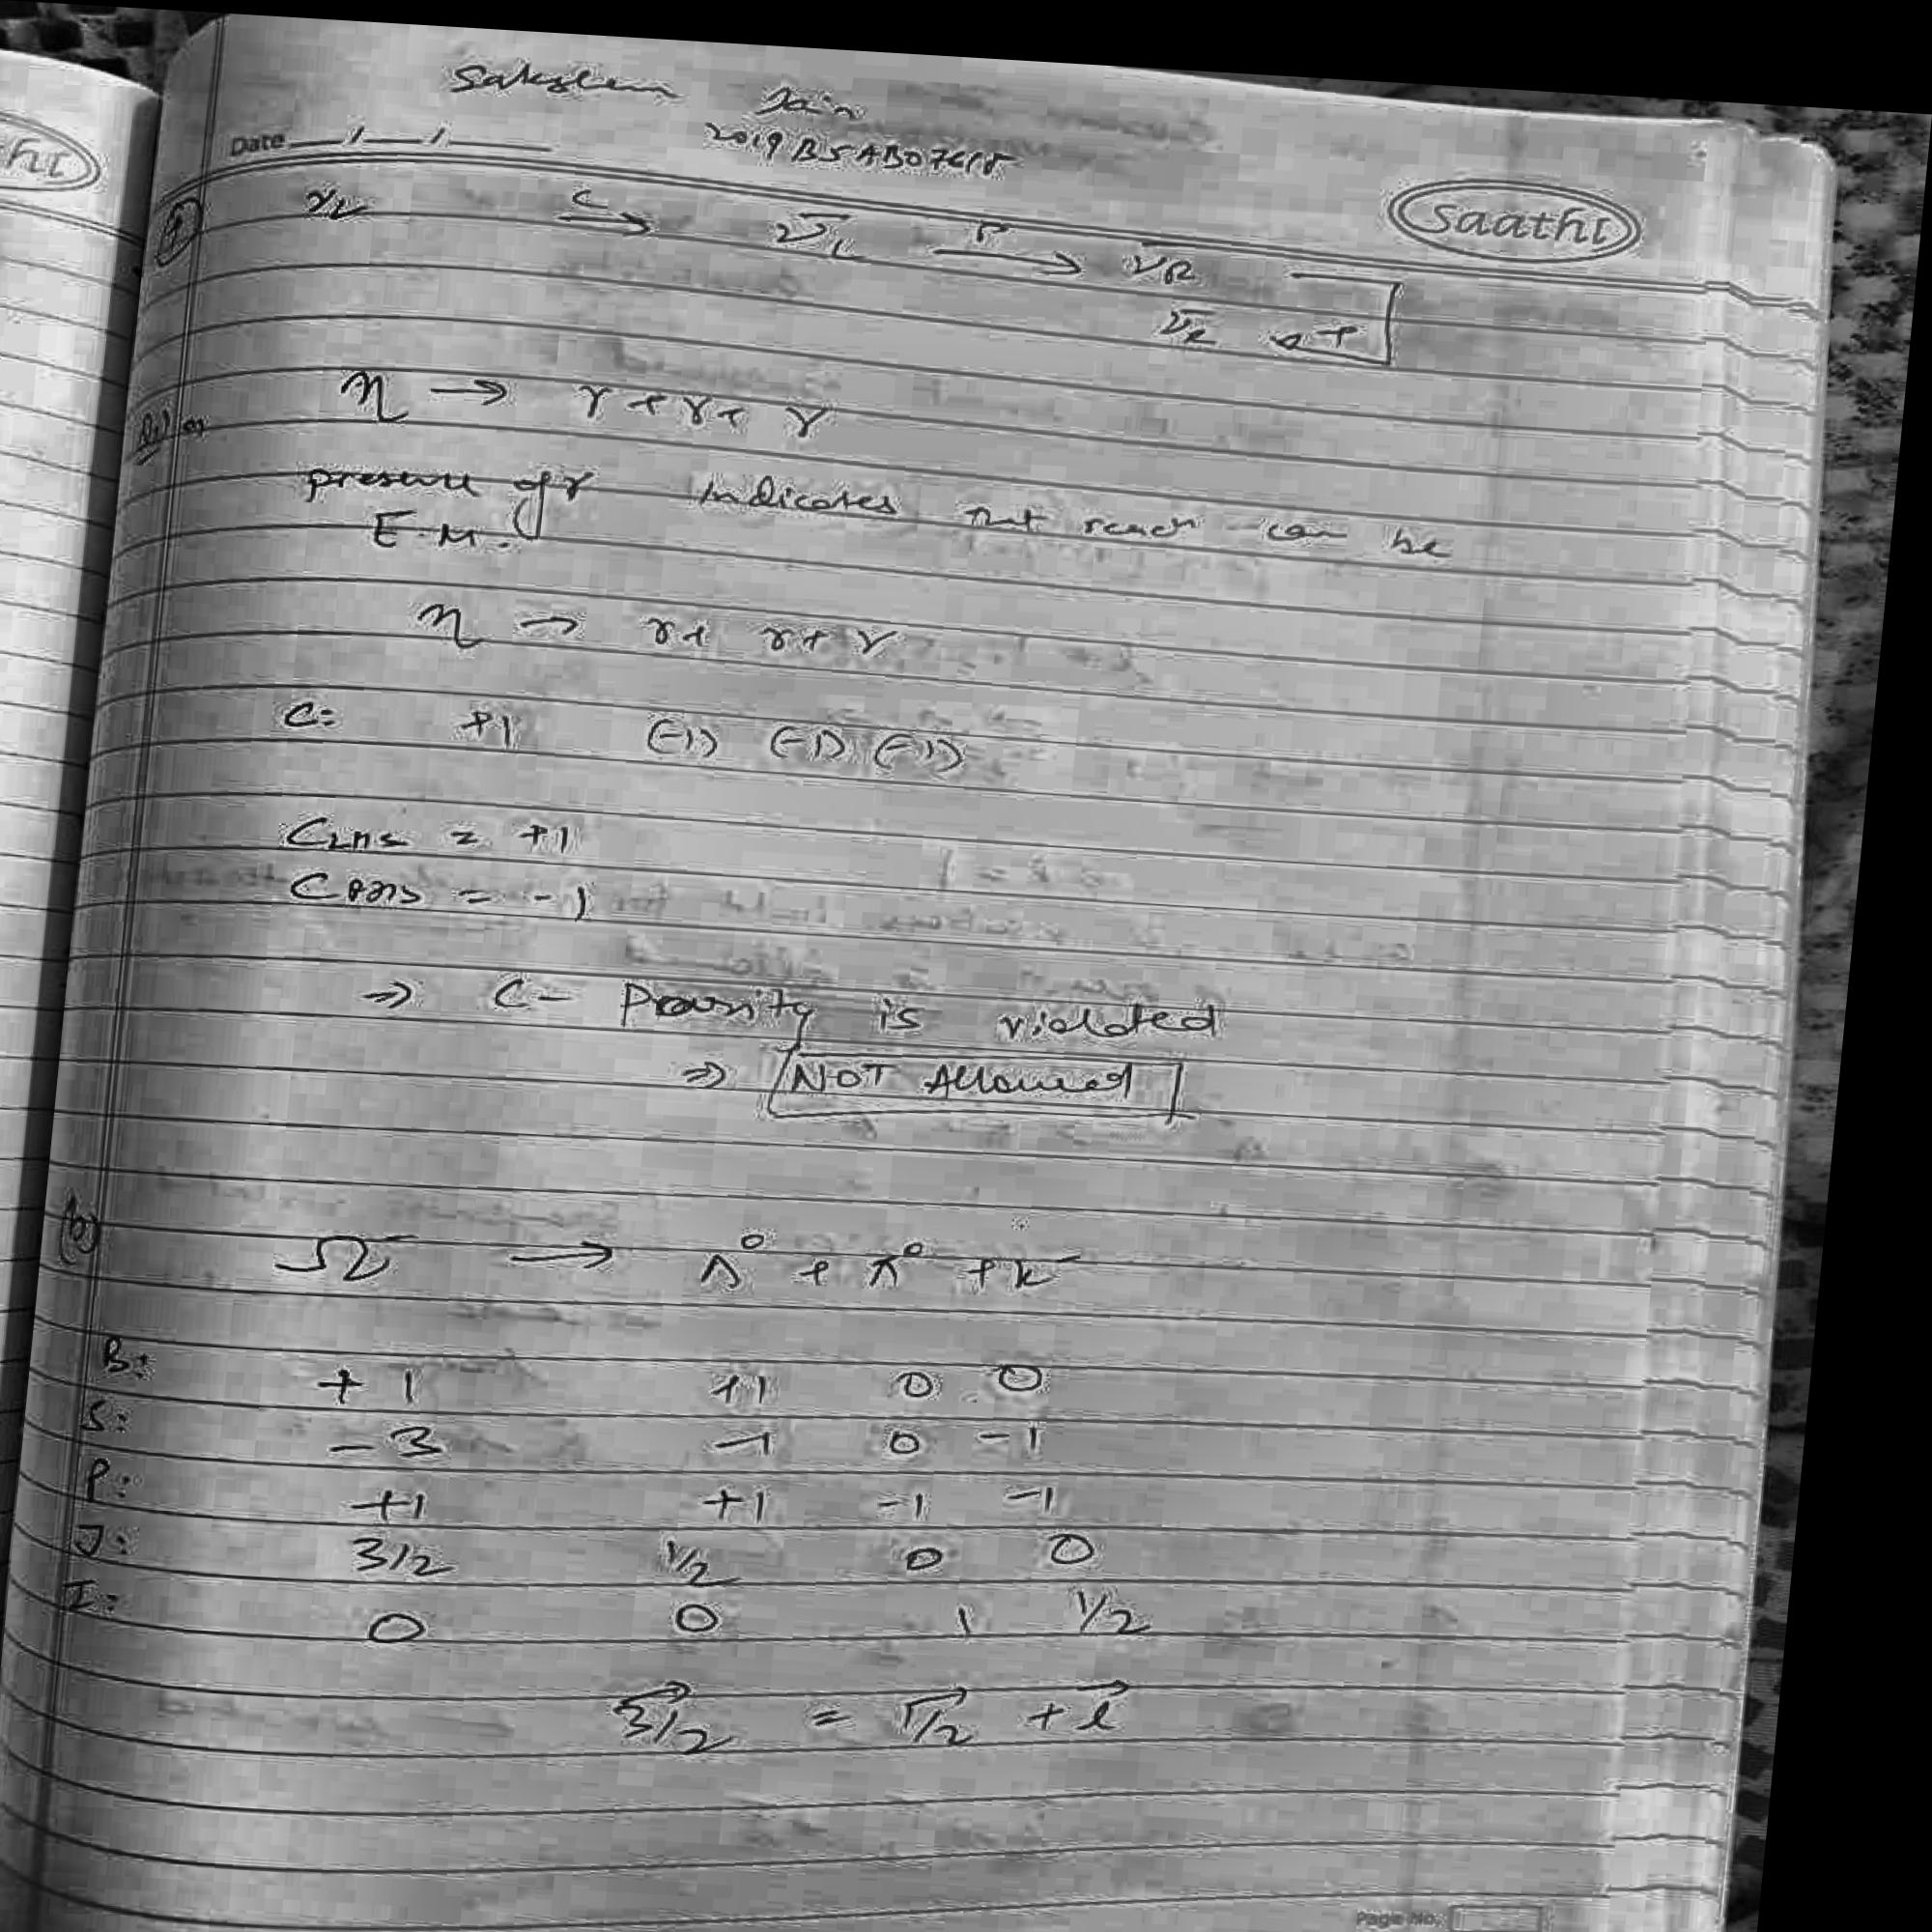 Saksham Jain
Date __/__/____
2019B5AB0761P
Saathi
ν_L →(C) ν̄_L →(P) ν̄_R
η → γ + γ + γ
presence of γ indicates that reacn can be
E.M.
η → γ + γ + γ
C: +1 (-1) (-1) (-1)
C_LHS = +1
C_RHS = -1
⇒ C- Parity is violated
⇒ NOT Allowed
(b)
Ω⁻ → Λ⁰ + π⁰ + k⁻
B: +1 +1 0 0
S: -3 -1 0 -1
P: +1 +1 -1 -1
J: 3/2 1/2 0 0
I: 0 0 1 1/2
3/2 = 1/2 + l
Page No.